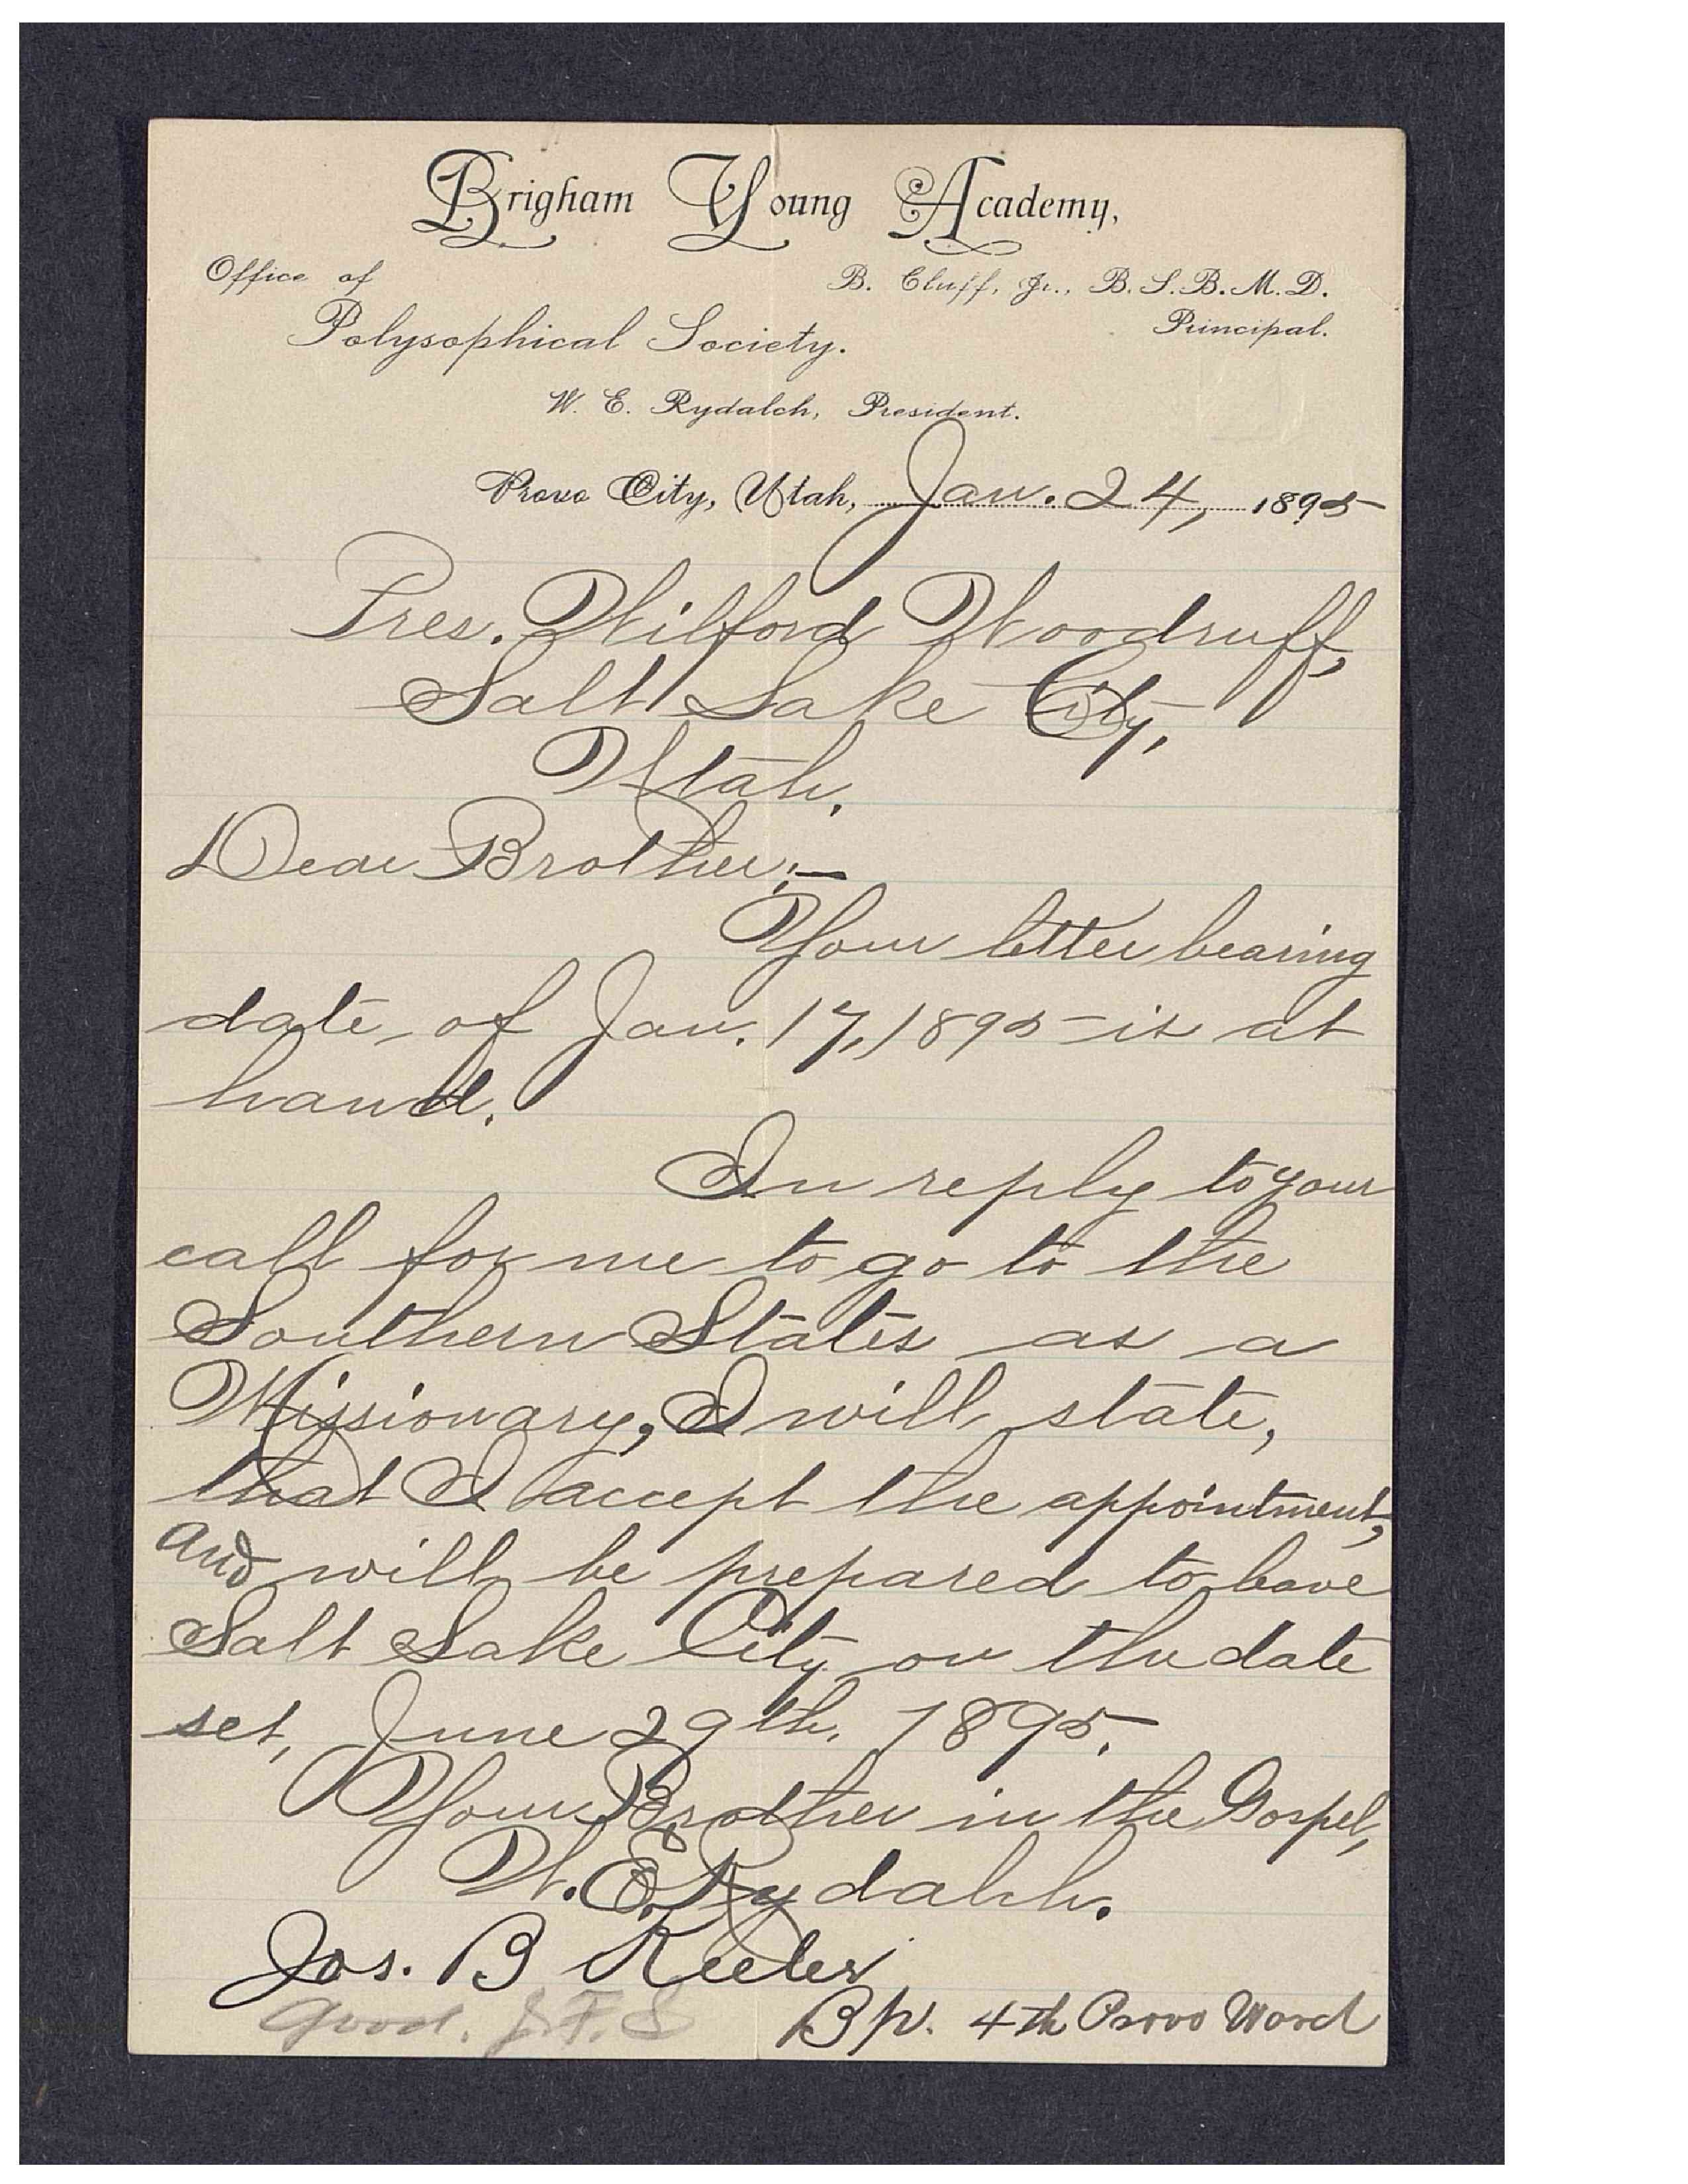 Brigham Young Academy,
Office of
B. Cluff, Jr., B.S.B.M.D.
Polysophical Society.
Principal.
W. E. Rydalch, President.
Provo City, Utah, Jan. 24, 1895
Pres. Wilford Woodruff,
Salt Lake City,
Utah.
Dear Brother:—
Your letter bearing
date of Jan. 17, 1895 is at
hand.
In reply to your
call for me to go to the
Southern States as a
Missionary, I will state,
that I accept the appointment,
and will be prepared to leave
Salt Lake City on the date
set, June 29th. 1895.
Your Brother in the Gospel,
W. E. Rydalch.
Jos. B Keeler
Bp. 4th Provo Ward
Good. J. F. S